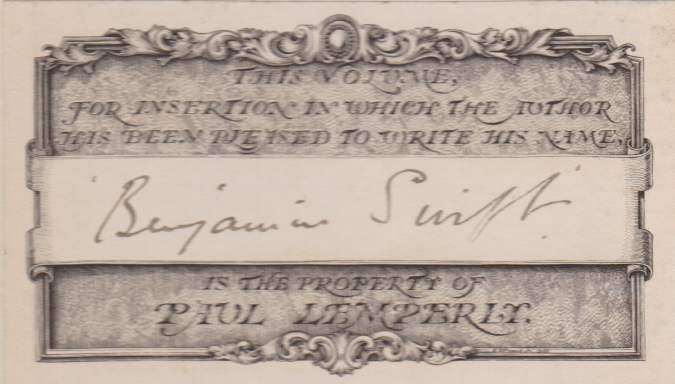 THIS VOLUME,
FOR INSERTION IN WHICH THE AUTHOR
HAS BEEN PLEASED TO WRITE HIS NAME,
'Benjamin Swift'
IS THE PROPERTY OF
PAUL LEMPERLY.